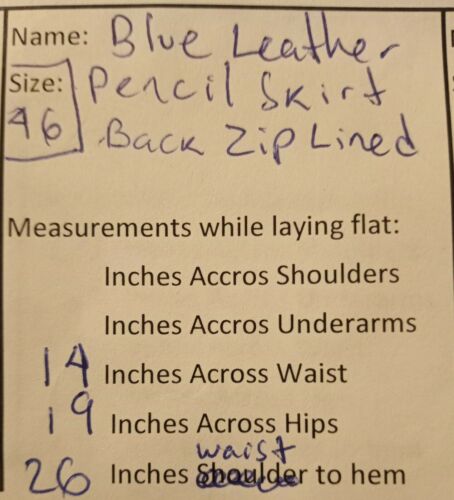 Name: Blue Leather
Size: Pencil Skirt
46 Back Zip Lined
Measurements while laying flat:
Inches Accros Shoulders
Inches Accros Underarms
14 Inches Across Waist
19 Inches Across Hips
waist
26 Inches Shoulder to hem